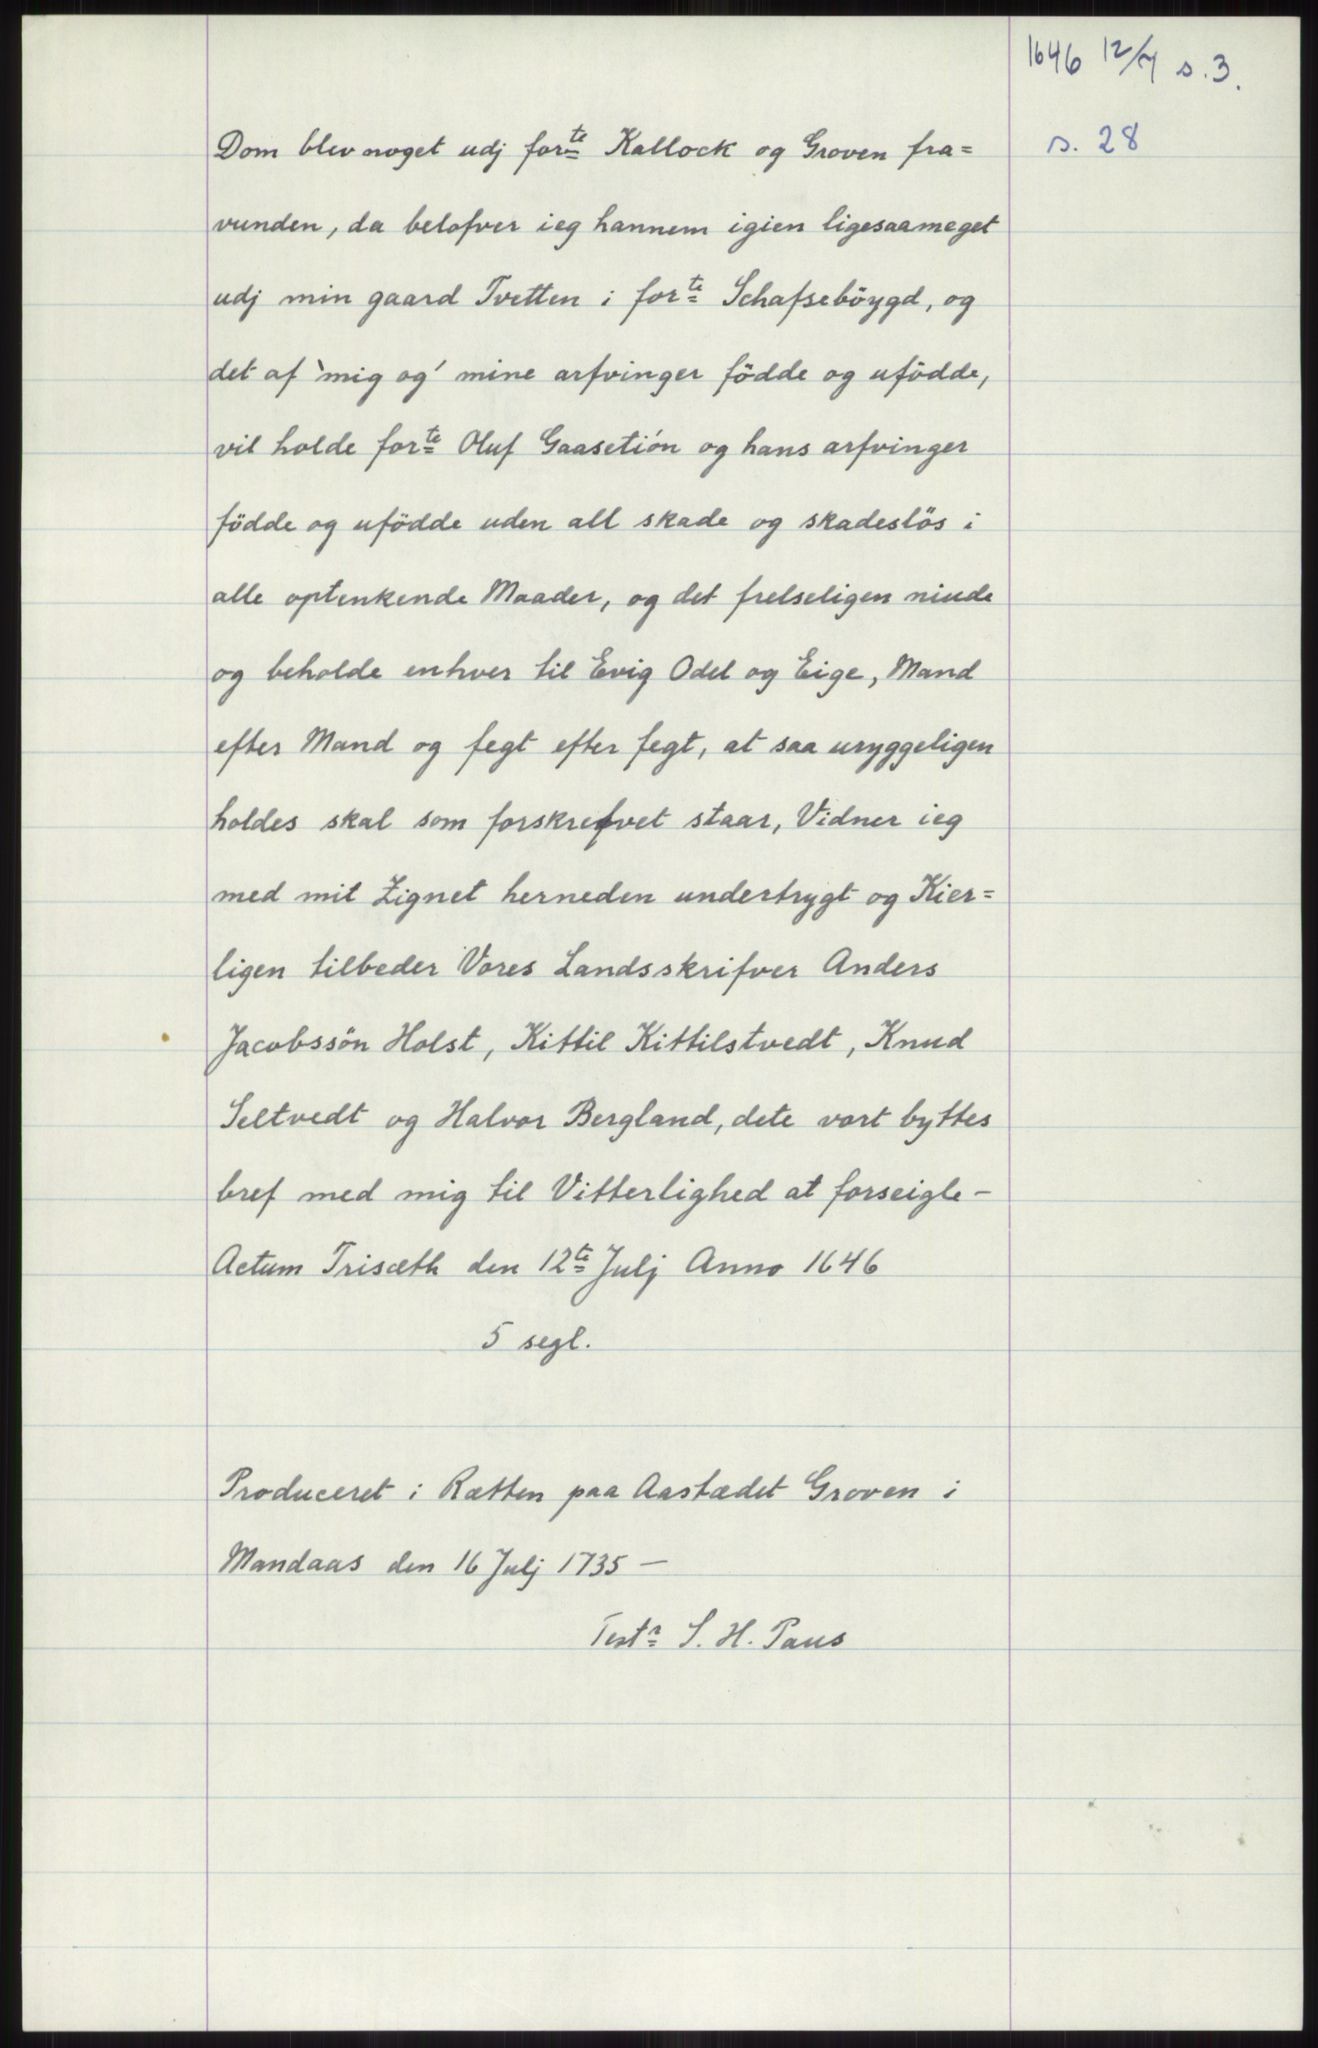 1646 12/7 s. 3.
s. 28
Dom blev noget udj forte Kallock og Groven fra=
vunden, da belofver ieg hannem igien ligesaameget
udj min gaard Tvetten i forte Schafseböygd, og
det af 'mig og' mine arfvinger födde og ufödde,
vil holde forte Oluf Gaasetión og hans arfvinger
födde og ufödde uden all skade og skadeslös i
alle optenkende Maader, og det frelseligen niude
og beholde enhver til Evig Odel og Eige, Mand
efter Mand og fegt efter fegt, at saa uryggeligen
holdes skal som forskrefvet staar, Vidner ieg
med mit Zignet herneden undertrygt og Kier=
ligen tilbeder Vores Landsskrifver Anders
Jacobssön Holst, Kittil Kittilstvedt, Knud
Seltvedt og Halvor Bergland, dete vort byttes
bref med mig til Vitterlighed at forseigle -
Actum Trisæth den 12te Julj Anno 1646
5 segl.
Produceret i Rætten paa Aastædet Groven i
Mandaas den 16 Julj 1735 —
Testr S. H. Paus